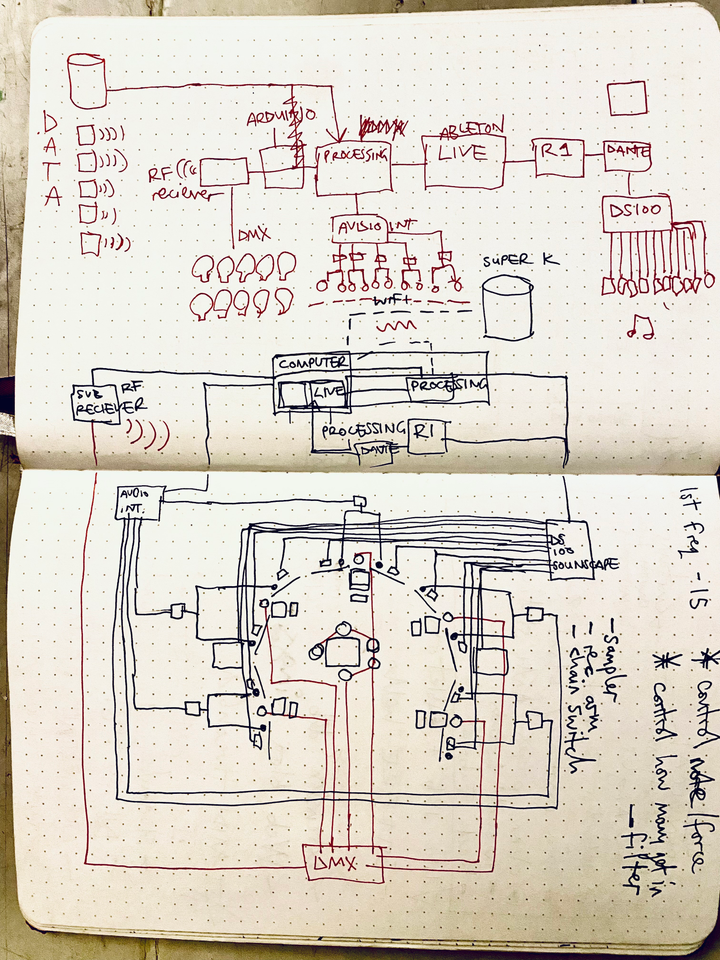 DATA
ARDUINO
RF
reciever
PROCESSING
ABLETON
LIVE
R1
DANTE
DS100
DMX
AUDIO INT.
WIFI
SUPER K
COMPUTER
LIVE
PROCESSING
RF
RECIEVER
PROCESSING
R1
DANTE
AUDIO
INT.
DS
100
SOUNSCAPE
DMX
1st frq - 15
* control note/force
* control how many get in
- filter
- sampler
- rec arm
- chain switch